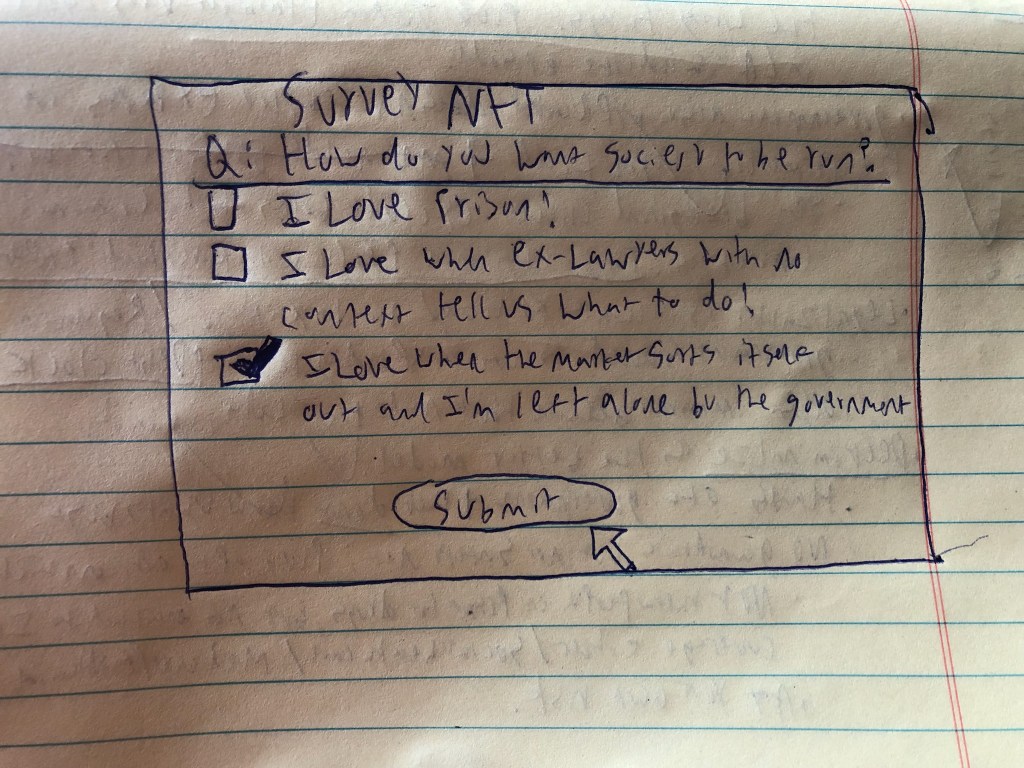 Survey NFT
Q: How do you want society to be run?
I Love Prison!
I Love when ex-Lawyers with no
context tell us what to do!
I Love when the market sorts itself
out and I'm left alone by the government
Submit